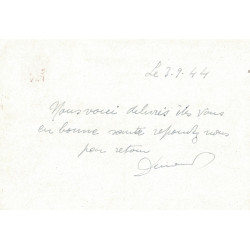 Le 3-9-44
Nous voici délivrés êtes vous
en bonne santé repondez nous
par retour